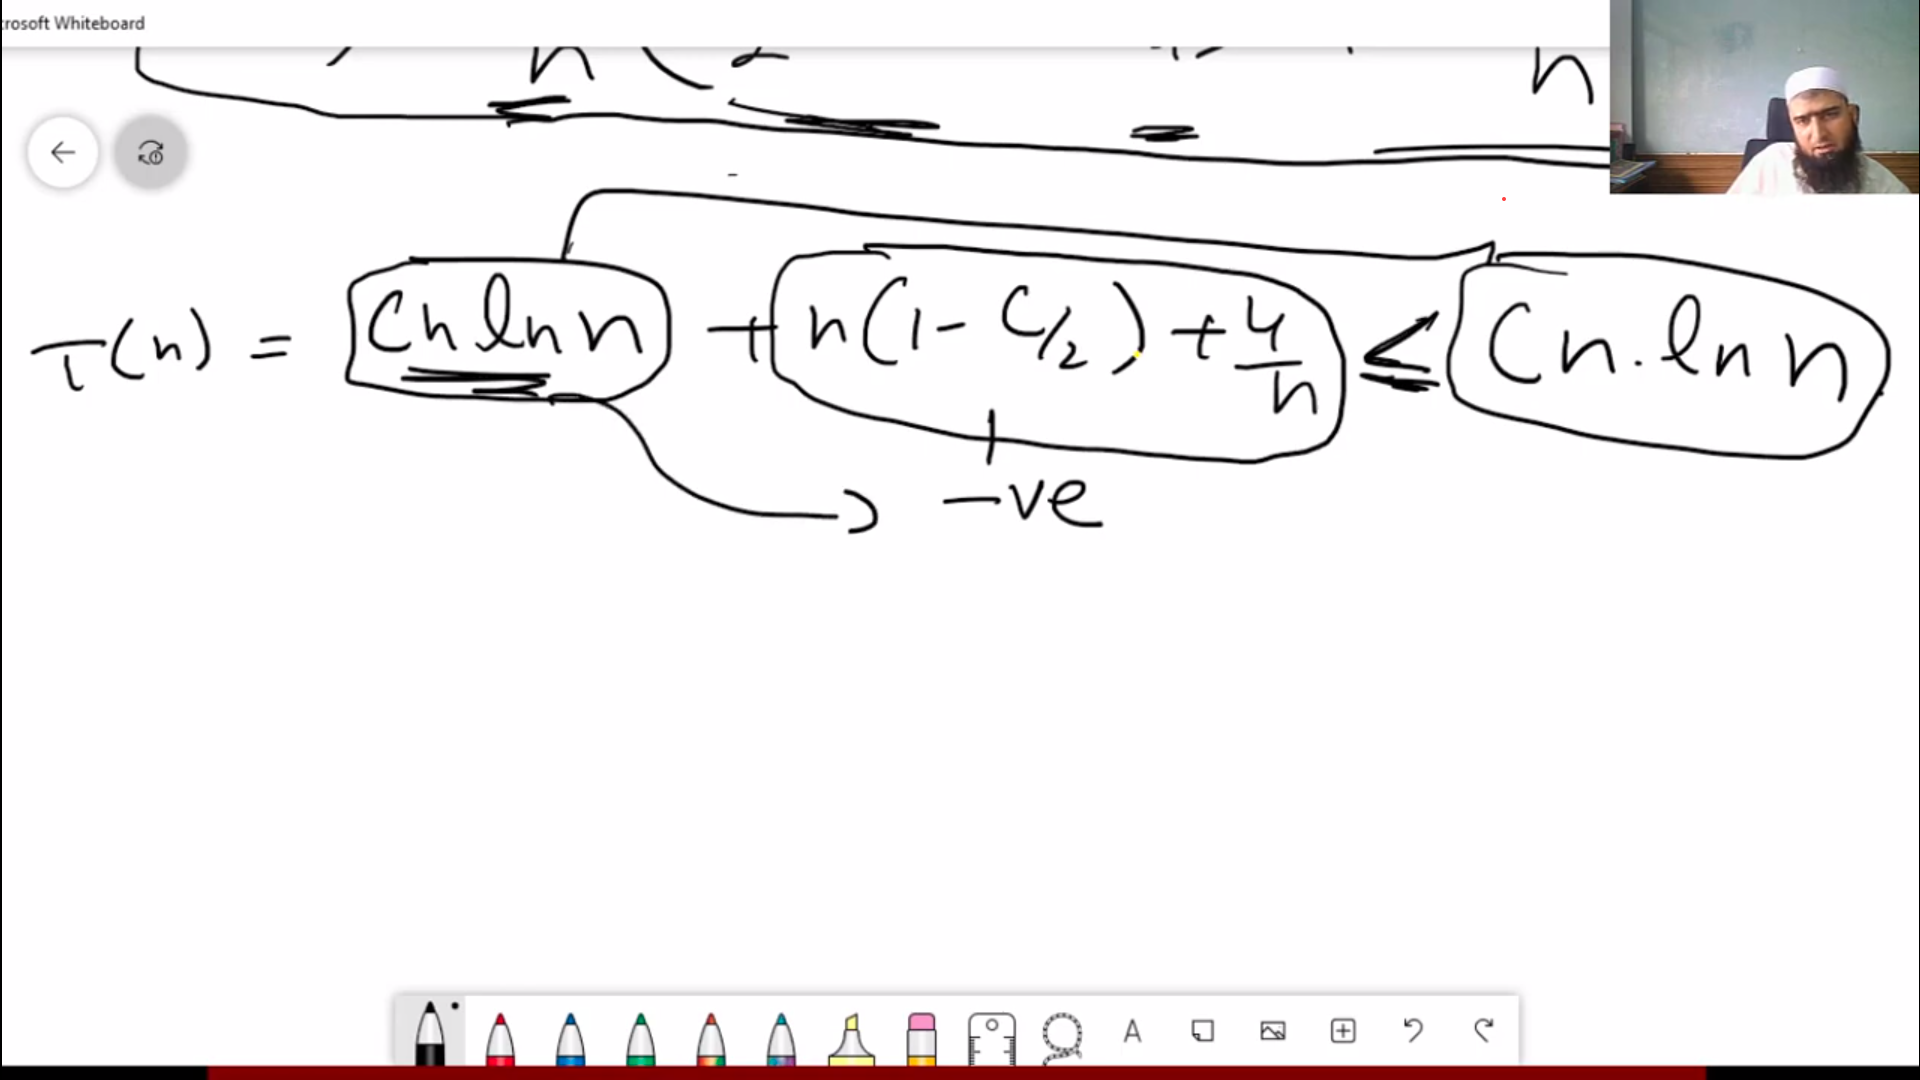 crosoft Whiteboard
n ( 2 n
T(n) = Cn ln n + n(1 - C/2) + 4/n ≤ Cn . ln n
-ve
A